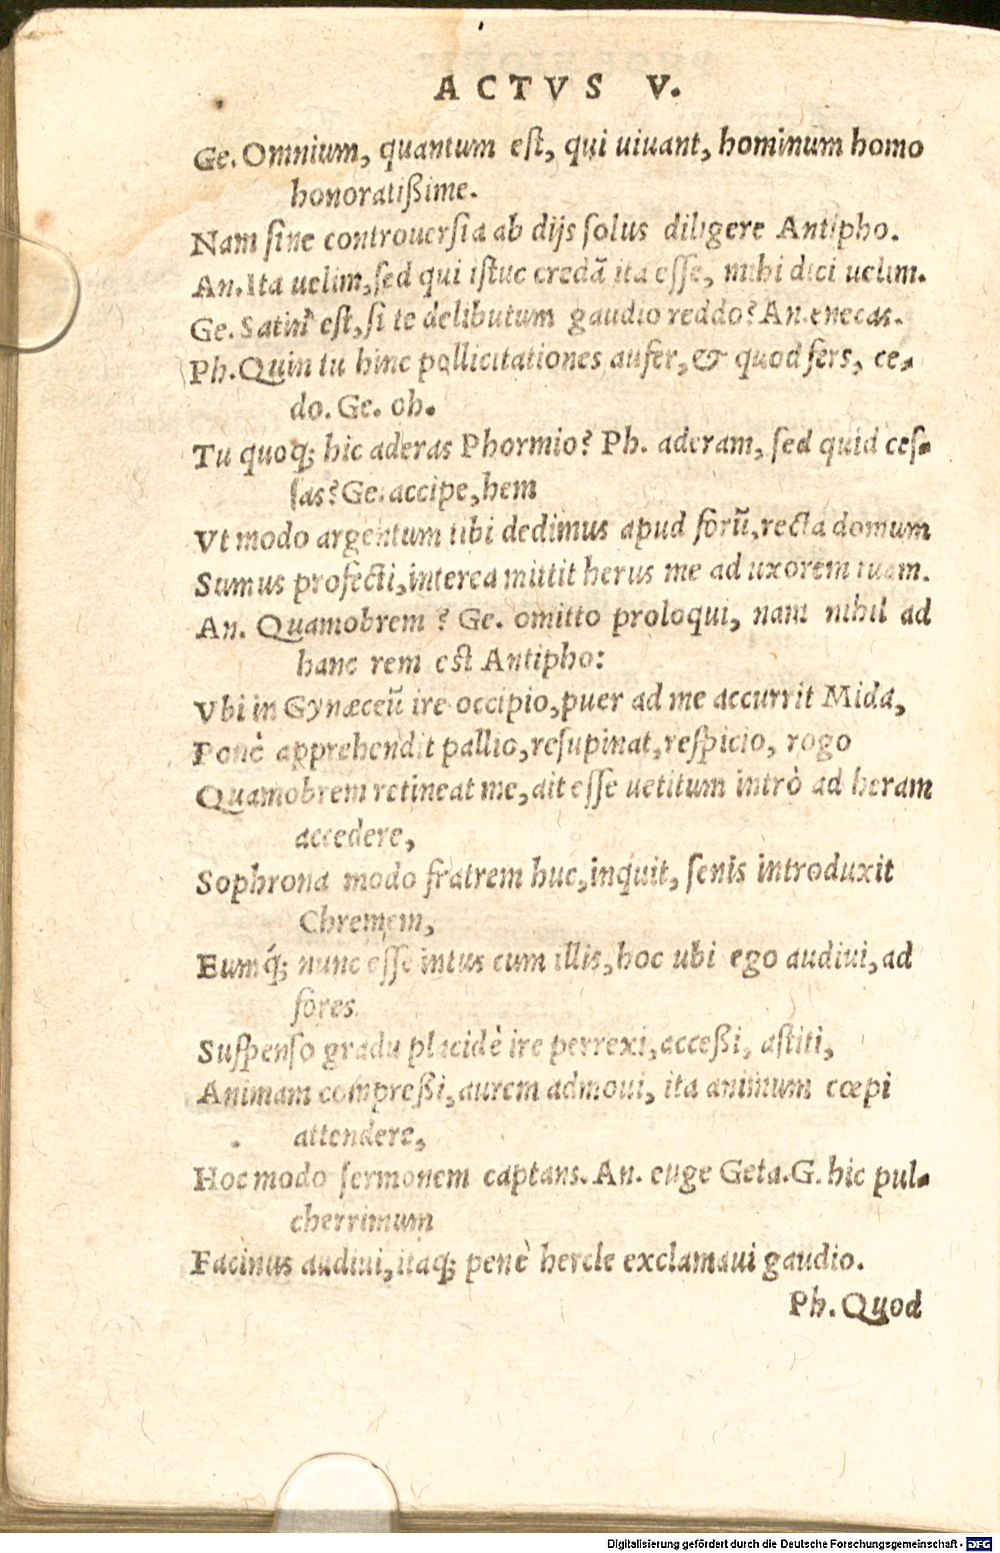 ACTVS V.
Ge. Omnium, quantum est, qui uiuant, hominum homo
honoratißime.
Nam sine controuersia ab dijs solus diligere Antipho.
An. Ita uelim, sed qui istuc credā ita esse, mihi dici uelim.
Ge. Satin' est, si te delibutum gaudio reddo? An. enecas.
Ph. Quin tu hinc pollicitationes aufer, & quod fers, ce-
do. Ge. oh.
Tu quoq; hic aderas Phormio? Ph. aderam, sed quid ces-
sas? Ge. accipe, hem
Vt modo argentum tibi dedimus apud forū, recta domum
Sumus profecti, interea mittit herus me ad uxorem tuam.
An. Quamobrem? Ge. omitto proloqui, nam nihil ad
hanc rem est Antipho:
Vbi in Gynæceū ire occipio, puer ad me accurrit Mida,
Ponè apprehendit pallio, resupinat, respicio, rogo
Quamobrem retineat me, ait esse uetitum intrò ad heram
accedere,
Sophrona modo fratrem huc, inquit, senis introduxit
Chremem,
Eumq́; nunc esse intus cum illis, hoc ubi ego audiui, ad
fores
Suspenso gradu placidè ire perrexi, acceßi, astiti,
Animam compreßi, aurem admoui, ita animum cœpi
attendere,
Hoc modo sermonem captans. An. euge Geta. G. hic pul-
cherrimum
Facinus audiui, itaq; penè hercle exclamaui gaudio.
Ph. Quod
Digitalisierung gefördert durch die Deutsche Forschungsgemeinschaft - DFG